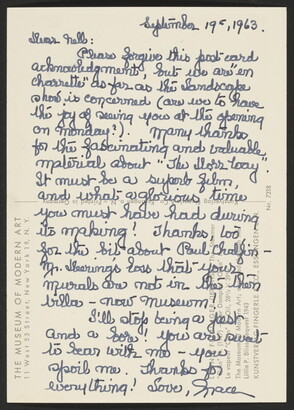 September 19th, 1963.
Dear Nell:
Please forgive this post card
acknowledgment, but we are "en
charrette" as far as the Landscape
show is concerned (are we to have
the joy of seeing you at the opening
on Monday?). Many thanks
for the fascinating and valuable
material about "The
It must be a superb film,
and what a glorious time
you must have had during
its making! Thanks, too -
for the bit about Paul Chalfin -
Mr. Deering's loss that your
murals are not in the then
villa - now museum -
I'll stop being a pest
and a bore! you are sweet
to bear with me - you
spoil me. Thanks for
everything! Love, Grace
THE MUSEUM OF MODERN ART
11 West 53 Street, New York 19, N.Y.
No. 7258